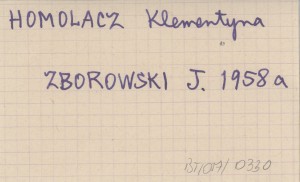 HOMOLACZ Klementyna
ZBOROWSKI J. 1958a
BT/017/0330